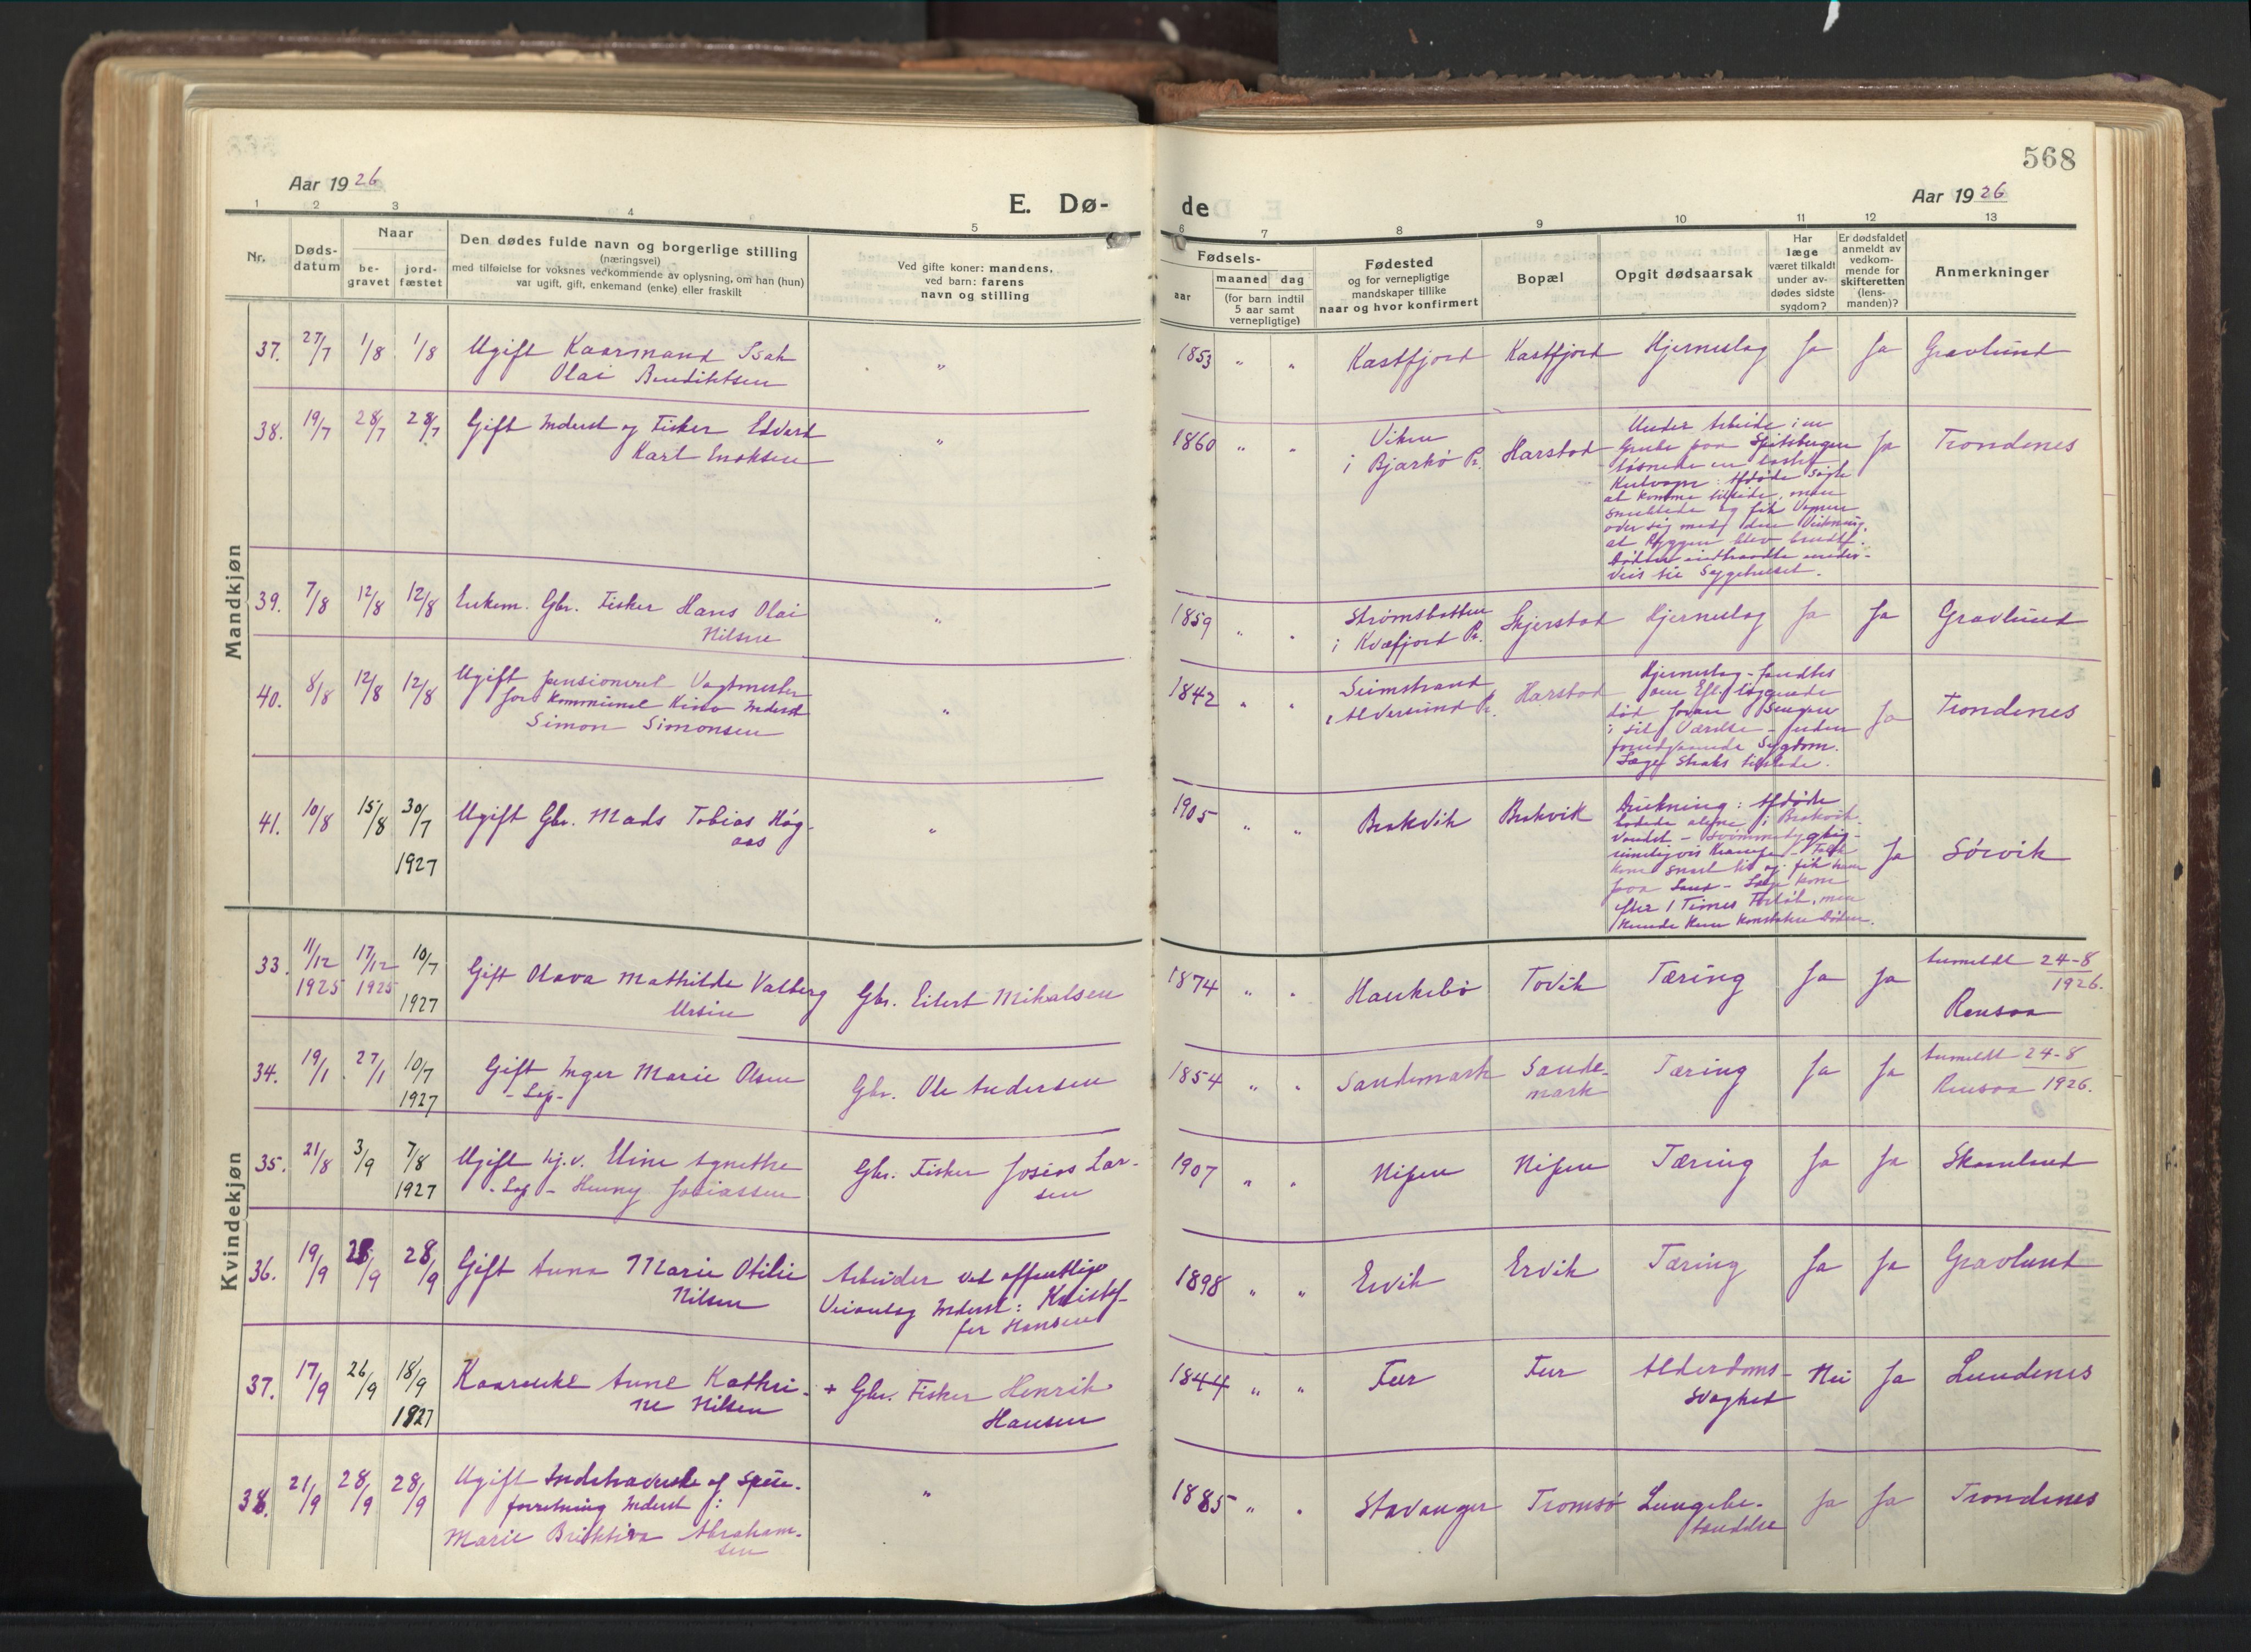 568
Aar 1926
E. Dø-
de
Aar 1926
1 2 3 4 5 6 7 8 9 10 11 12 13
Nr.
Døds-
datum
Naar
be-
gravet
jord-
fæstet
Den dødes fulde navn og borgerlige stilling
(næringsvei)
med tilføielse for voksnes vedkommende av oplysning, om han (hun)
var ugift, gift, enkemand (enke) eller fraskilt
Ved gifte koner: mandens,
ved barn: farens
navn og stilling
Fødsels-
aar
maaned dag
(for barn indtil
5 aar samt
vernepligtige)
Fødested
og for vernepligtige
mandskaper tillike
naar og hvor konfirmert
Bopæl
Opgit dødsaarsak
Har
læge
været tilkaldt
under av-
dødes sidste
sygdom?
Er dødsfaldet
anmeldt av
vedkom-
mende for
skifteretten
(lens-
manden)?
Anmerkninger
Mandkjøn
37. 27/7 1/8 1/8 Ugift Kaarmand Isak
Olai Bendiktsen
" 1853 " " Kastfjord Kastfjord Hjerneslag Ja Ja Gravlund
38. 19/7 28/7 28/7 Gift Inderst og Fisker Edvard
Karl Enoksen
" 1860 " " Viken
i Bjarkö Pr. Harstad
Under Arbeide i en
Grube paa Spitsbergen
løsnede en lastet
Kulvogn: Afdøde søgte
at komme tilside, men
snublede og fik Vognen
over sig med den Virkning,
at Ryggen blev brudt.
Døden indtraadte under-
veis til Sygehuset.
Ja Trondenes
39. 7/8 12/8 12/8 Enkem. Gbr. Fisker Hans Olai
Nilsen
" 1859 " " Strømsbotten
i Kvæfjord Pr. Skjerstad Hjerneslag Ja Ja Gravlund
40. 8/8 12/8 12/8 Ugift pensioneret Vagtmester
for Kommunal Kino Inderst
Simon Simonsen
" 1842 " " Seimstrand
i Alversund Pr. Harstad
Hjerneslag - fandtes
om Eft. liggende
død foran Sengen
i sit Værelse - uden
foregaaende Sygdom.
Læge straks tilstede.
Ja Trondenes
41. 10/8 15/8 30/7
1927
Ugift Gbr. Mads Tobias Høg-
aas
" 1905 " " Brokvik Brokvik
Drukning: Afdøde
badede alene i Brokvik-
vandet - svømmedygtig -
rimeligvis Krampe - Folk
kom snart til og fik ham
paa Land - Læge kom
efter 1 Times Forløb, men
kunde kun konstatere Døden.
Ja Sörvik
Kvindekjøn
33. 11/12 1925 17/12 1925 10/7
1927
Gift Olava Mathilde Valberg
Ursin
Gbr. Eilert Mikalsen
1874 " " Haukebö Tovik Tæring Ja Ja Anmeldt 24-8
1926.
Rensaa
34. 19/1 27/1 10/7
1927
Gift Inger Marie Olsen
- Lap -
Gbr. Ole Andersen
1854 " " Sandemark Sande-
mark
Tæring Ja Ja Anmeldt 24-8
Rensaa 1926.
35. 21/8 3/9 7/8
1927
Ugift hj.v. Uine Agnethe
- Lap - Henny Josiassen
Gbr. Fisker Josias Lar-
sen
1907 " " Nipen Nipen Tæring Ja Ja Skaanland
36. 19/9 28/9 28/9 Gift Anna Marie Otilie
Nilsen
Arbeider ved offentlige
Veianlæg Inderst: Kristof-
fer Hansen
1898 " " Ervik Ervik Tæring Ja Ja Gravlund
37. 17/9 26/9 18/9
1927
Kaarenke Anne Kathri-
ne Nilsen
+ Gbr. Fisker Henrik
Hansen
1844 " " Fur Fur Alderdoms-
svaghed
Nei Ja Lundenes
38. 21/9 28/9 28/9 Ugift Indehaverske af Spise-
forretning Inderst:
Marie Briktiva Abraham-
sen
" 1885 " " Stavanger Tromsø Lungebe-
tændelse
Ja Ja Trondenes